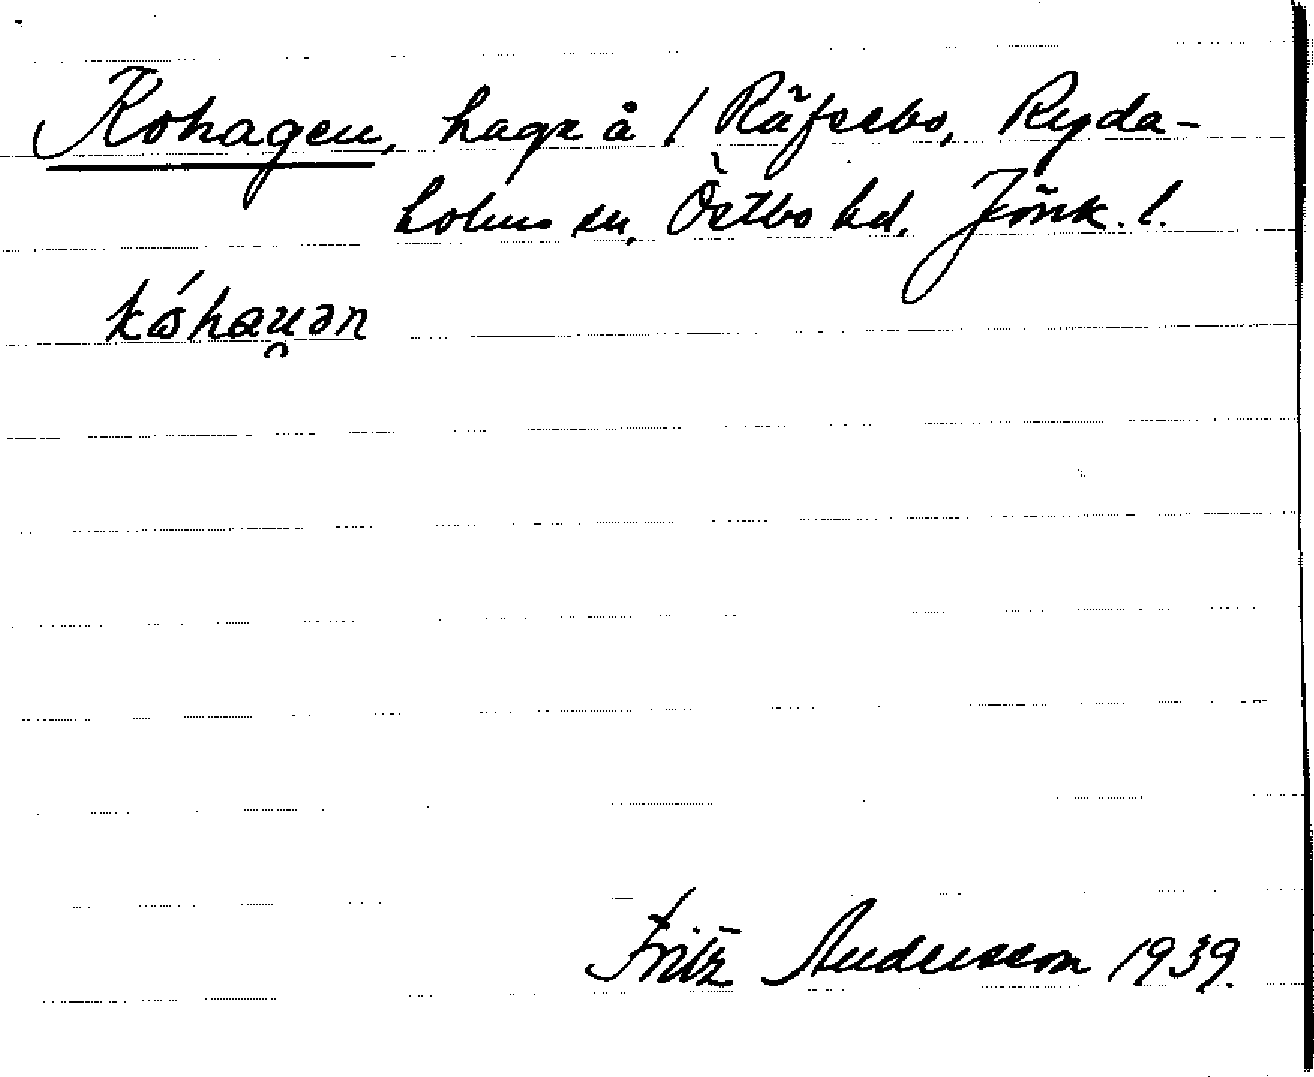 Kohagen, hage å / Räfsebo, Ryda-
holms sn, Östbo hd. Jönk. l.
kóhau̯ən
Fritz Andersson 1939.